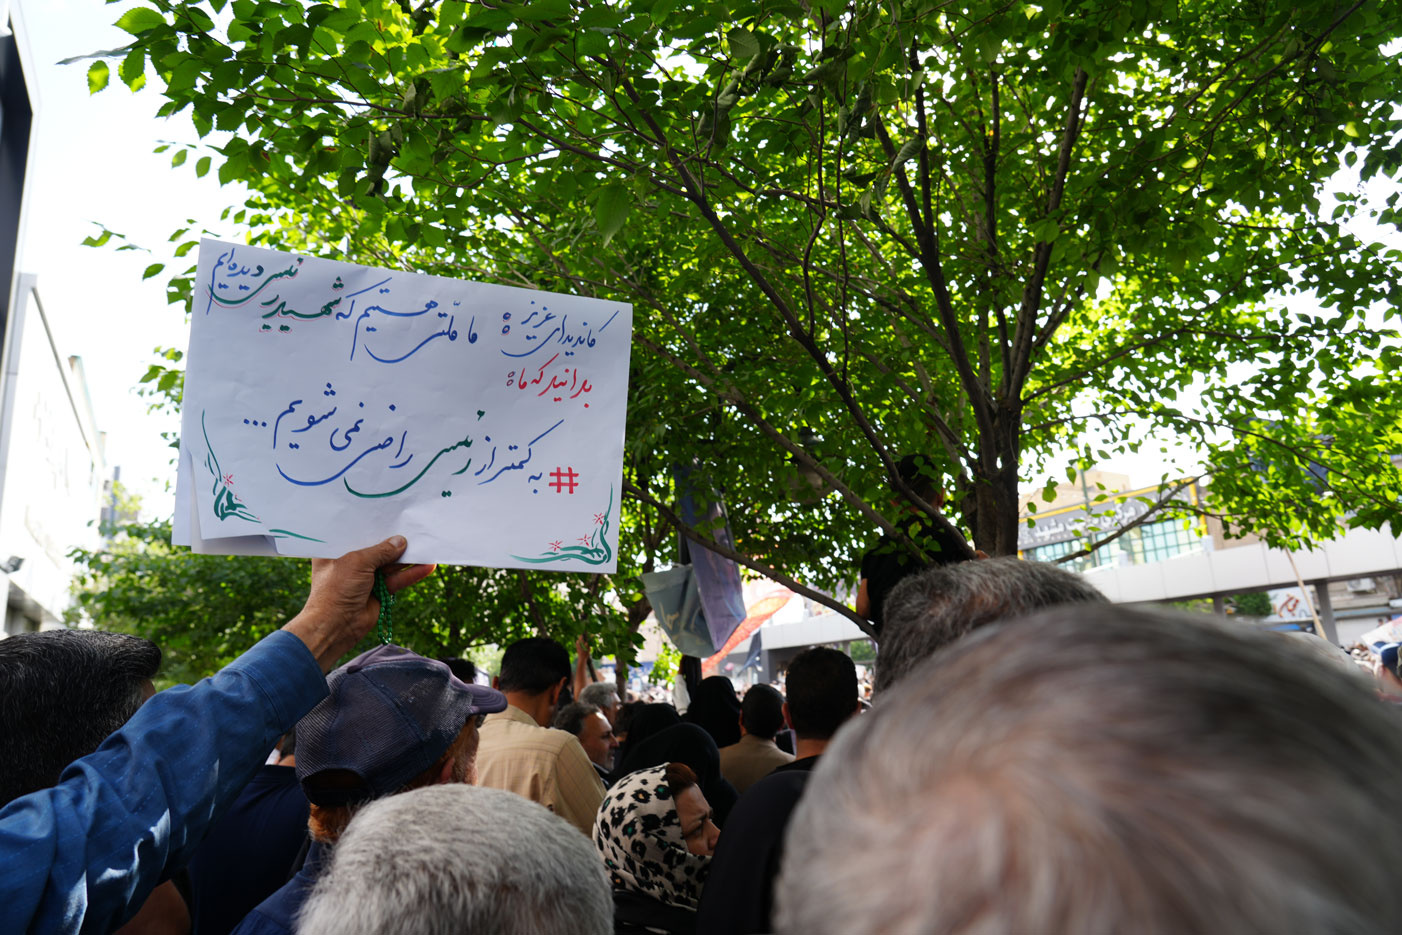 کاندیدای عزیز:
ما ملتی هستیم که شهید رئیسی دیده‌ایم
بدانید که ما:
#به کمتر از رئیسی راضی نمی شویم...